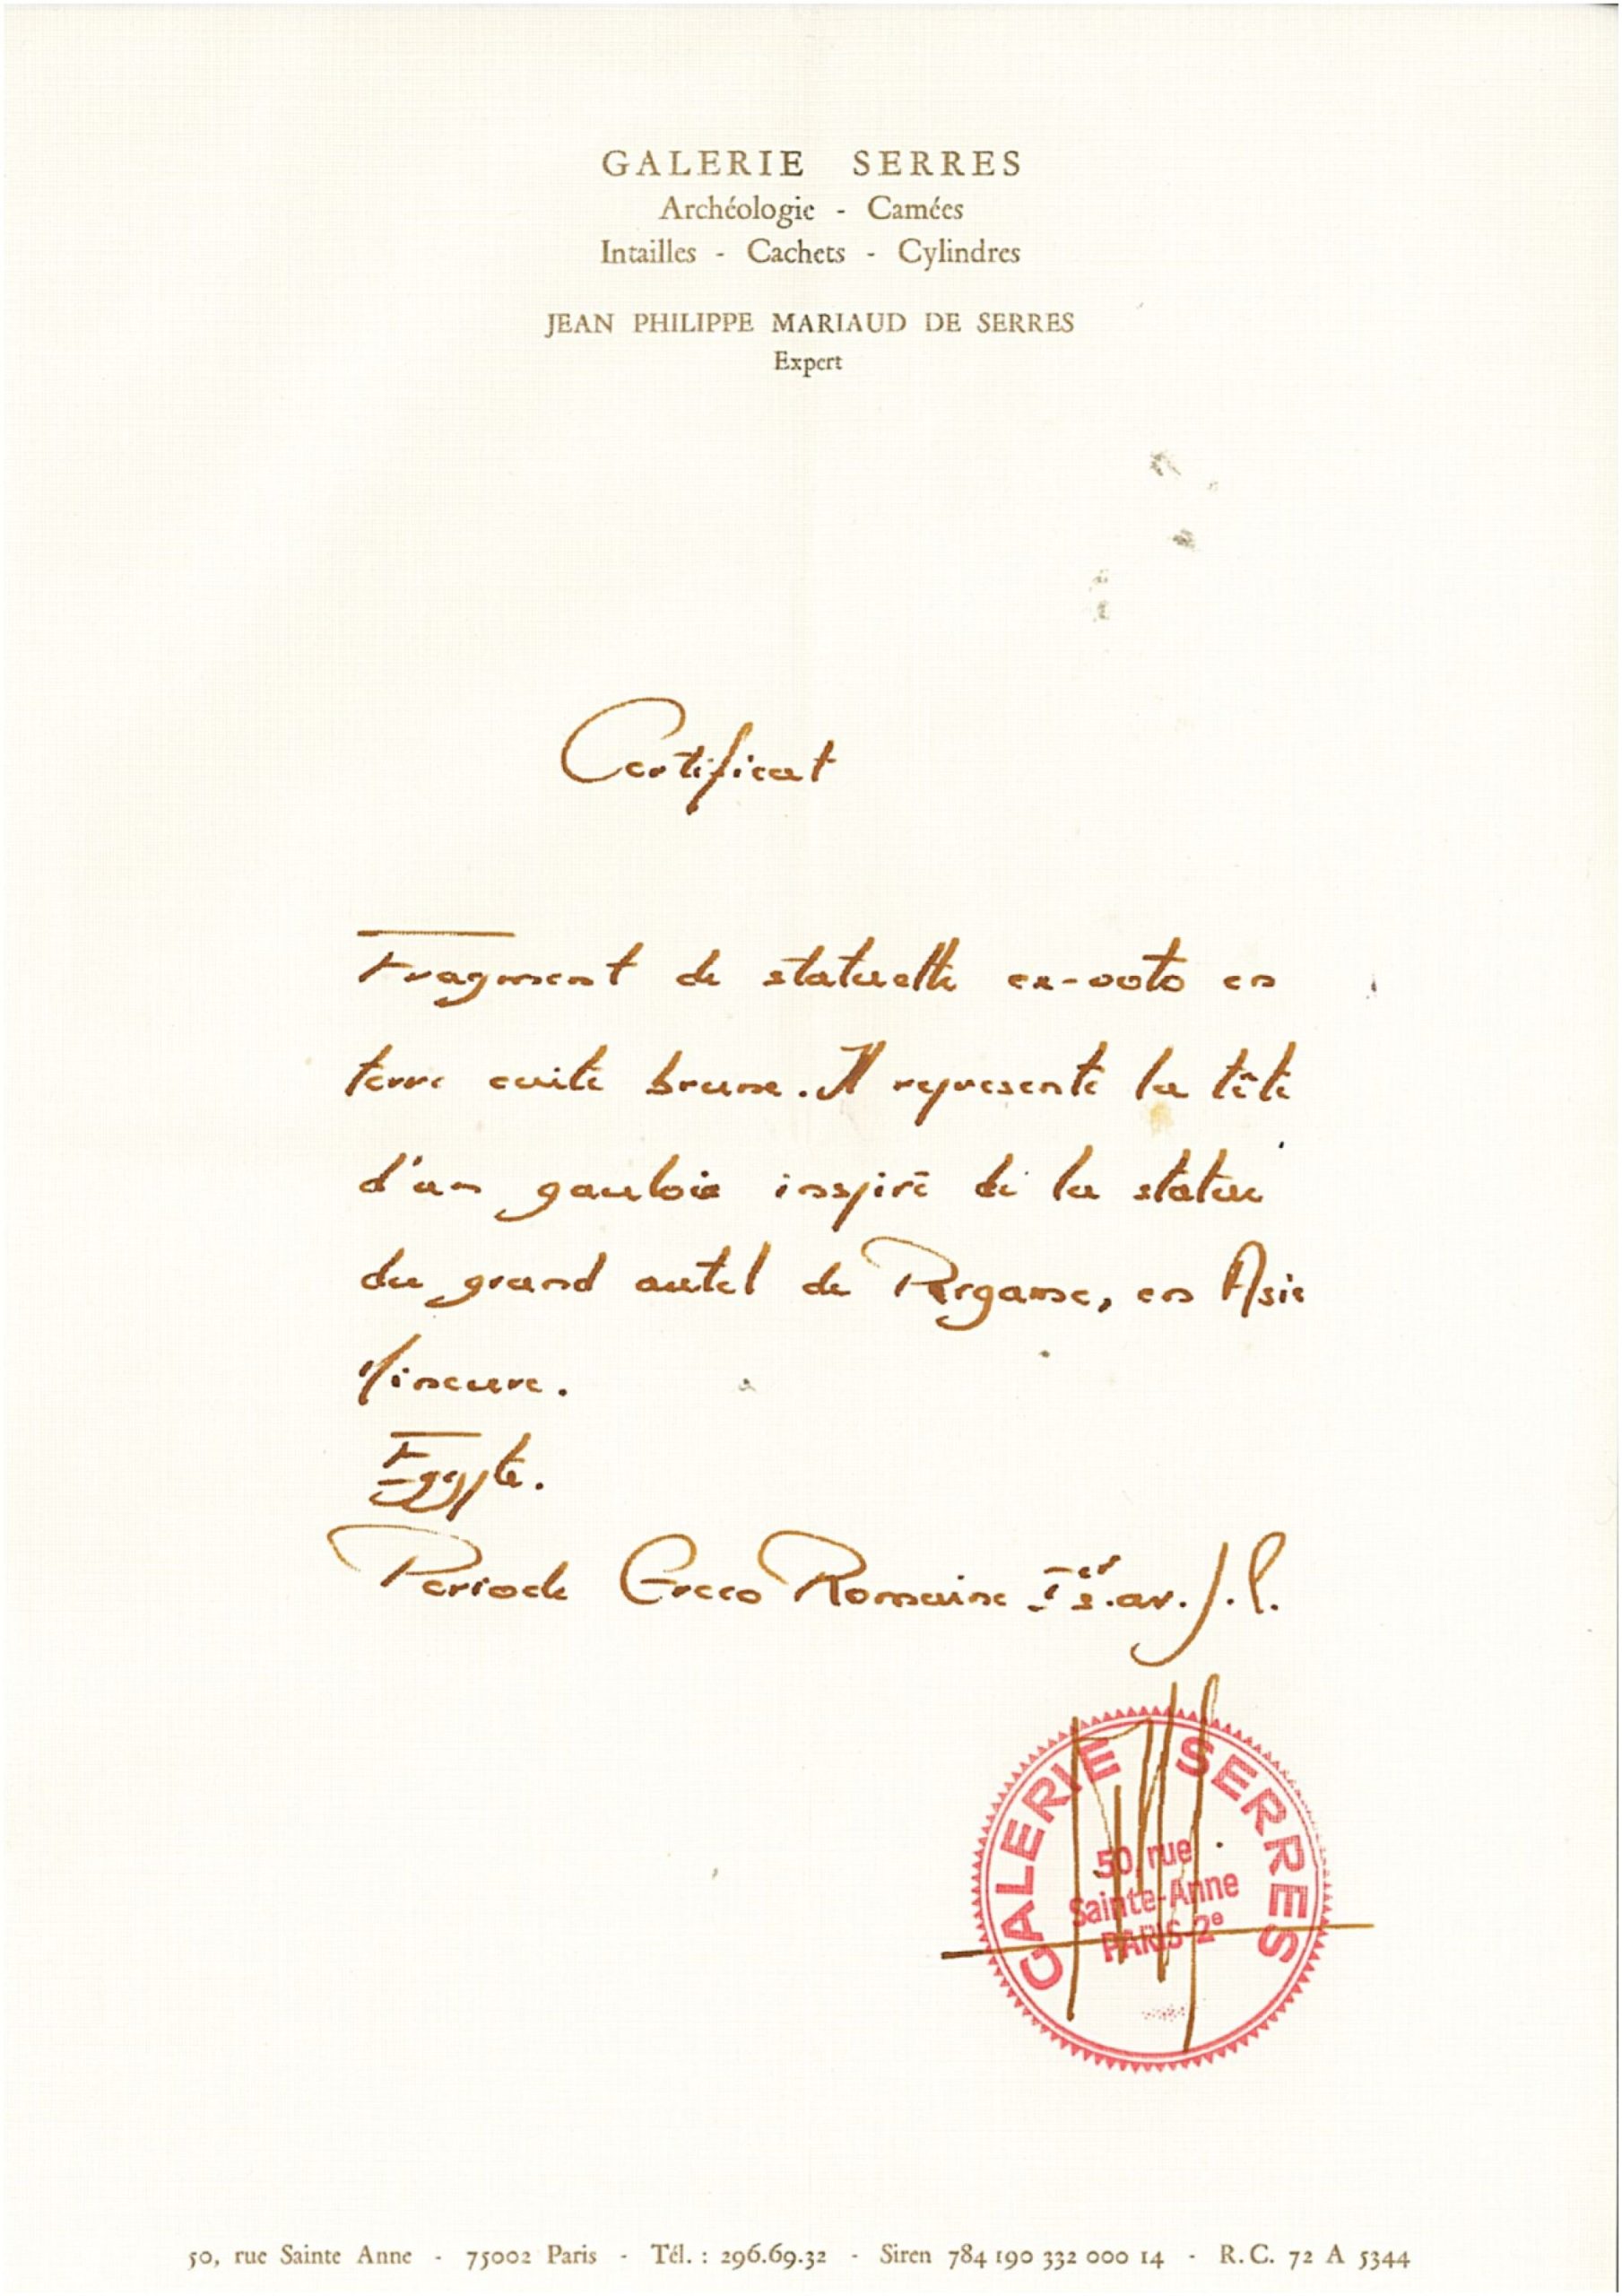 GALERIE SERRES
Archéologie - Camées
Intailles - Cachets - Cylindres
JEAN PHILIPPE MARIAUD DE SERRES
Expert
Certificat
Fragment de statuette ex-voto en
terre cuite brune. Il represente la tête
d'un gaulois inspiré de la statue
du grand autel de Pergame, en Asie
Mineure.
Egypte.
Periode Greco Romaine Ier s. av. J. C.
GALERIE SERRES
50, rue
Sainte-Anne
PARIS-2e
50, rue Sainte Anne - 75002 Paris - Tél. : 296.69.32 - Siren 784 190 332 000 14 - R.C. 72 A 5344